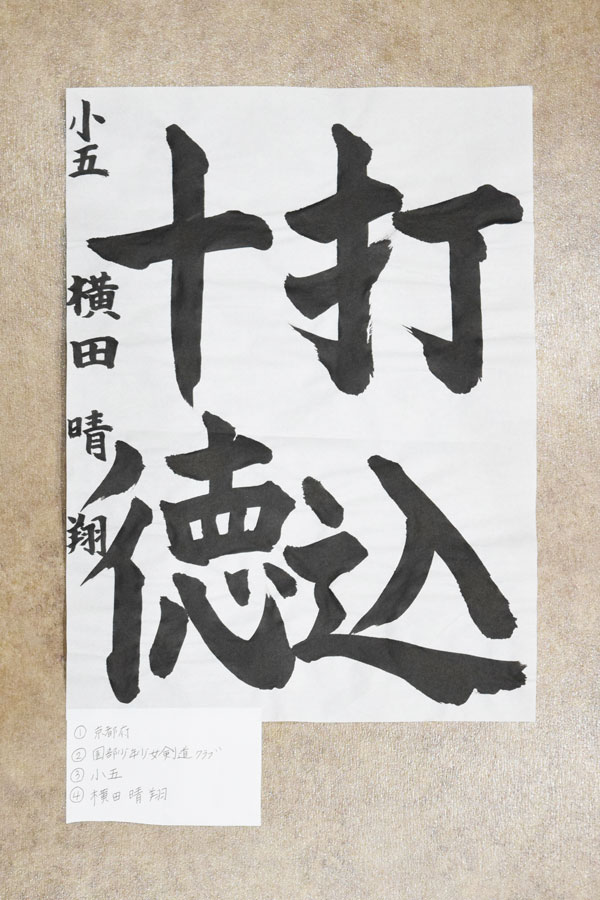 打込
十徳
小五 横田 晴翔
① 京都府
② 園部少年少女剣道クラブ
③ 小五
④ 横田 晴翔